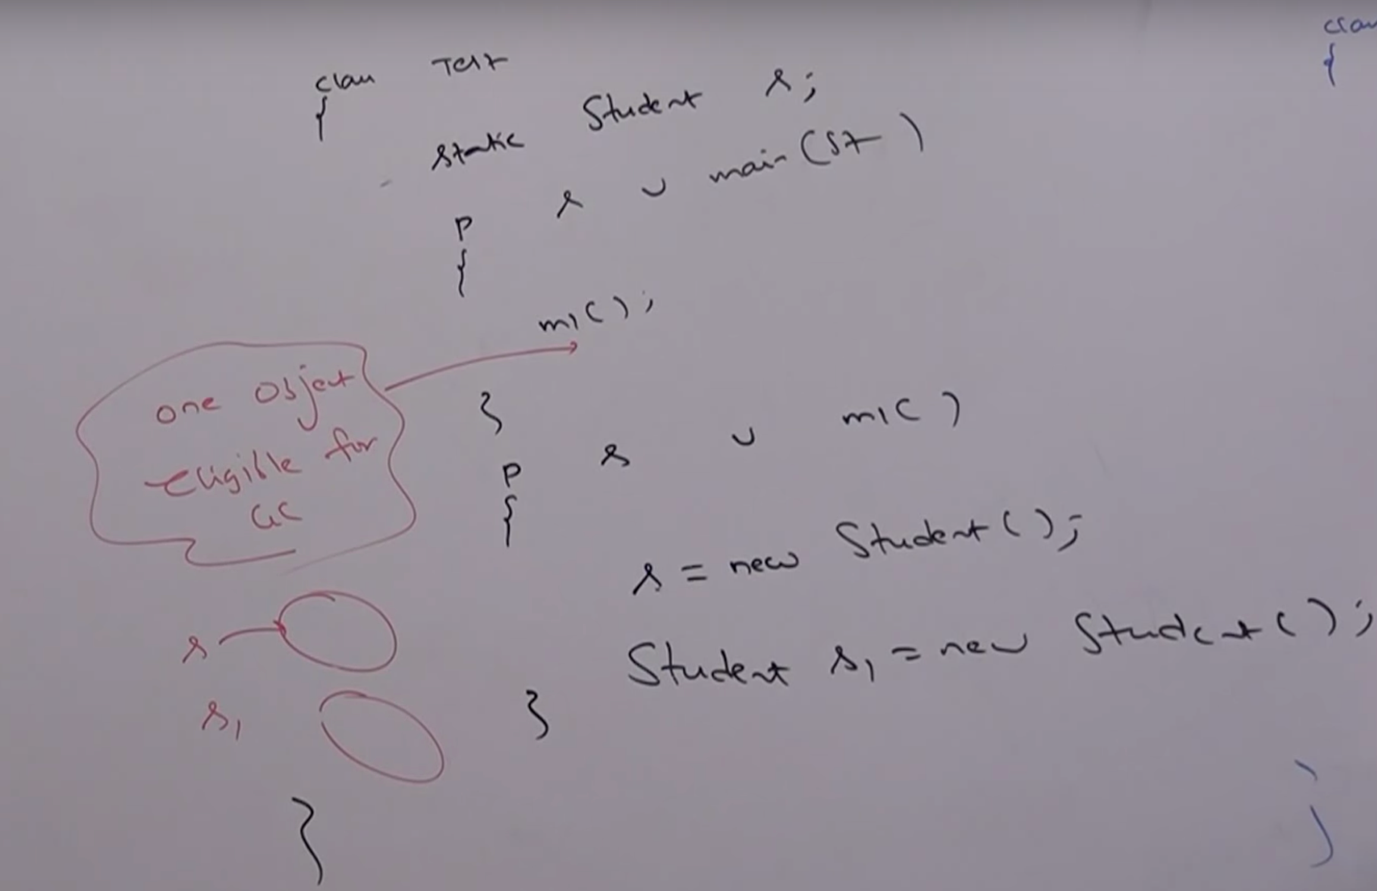 class Test
{
static Student s;
p s v main(St )
{
m1();
}
p s v m1( )
{
s = new Student();
Student s1 = new Student();
}
}
one object
eligible for
GC
s
s1
class
{
}